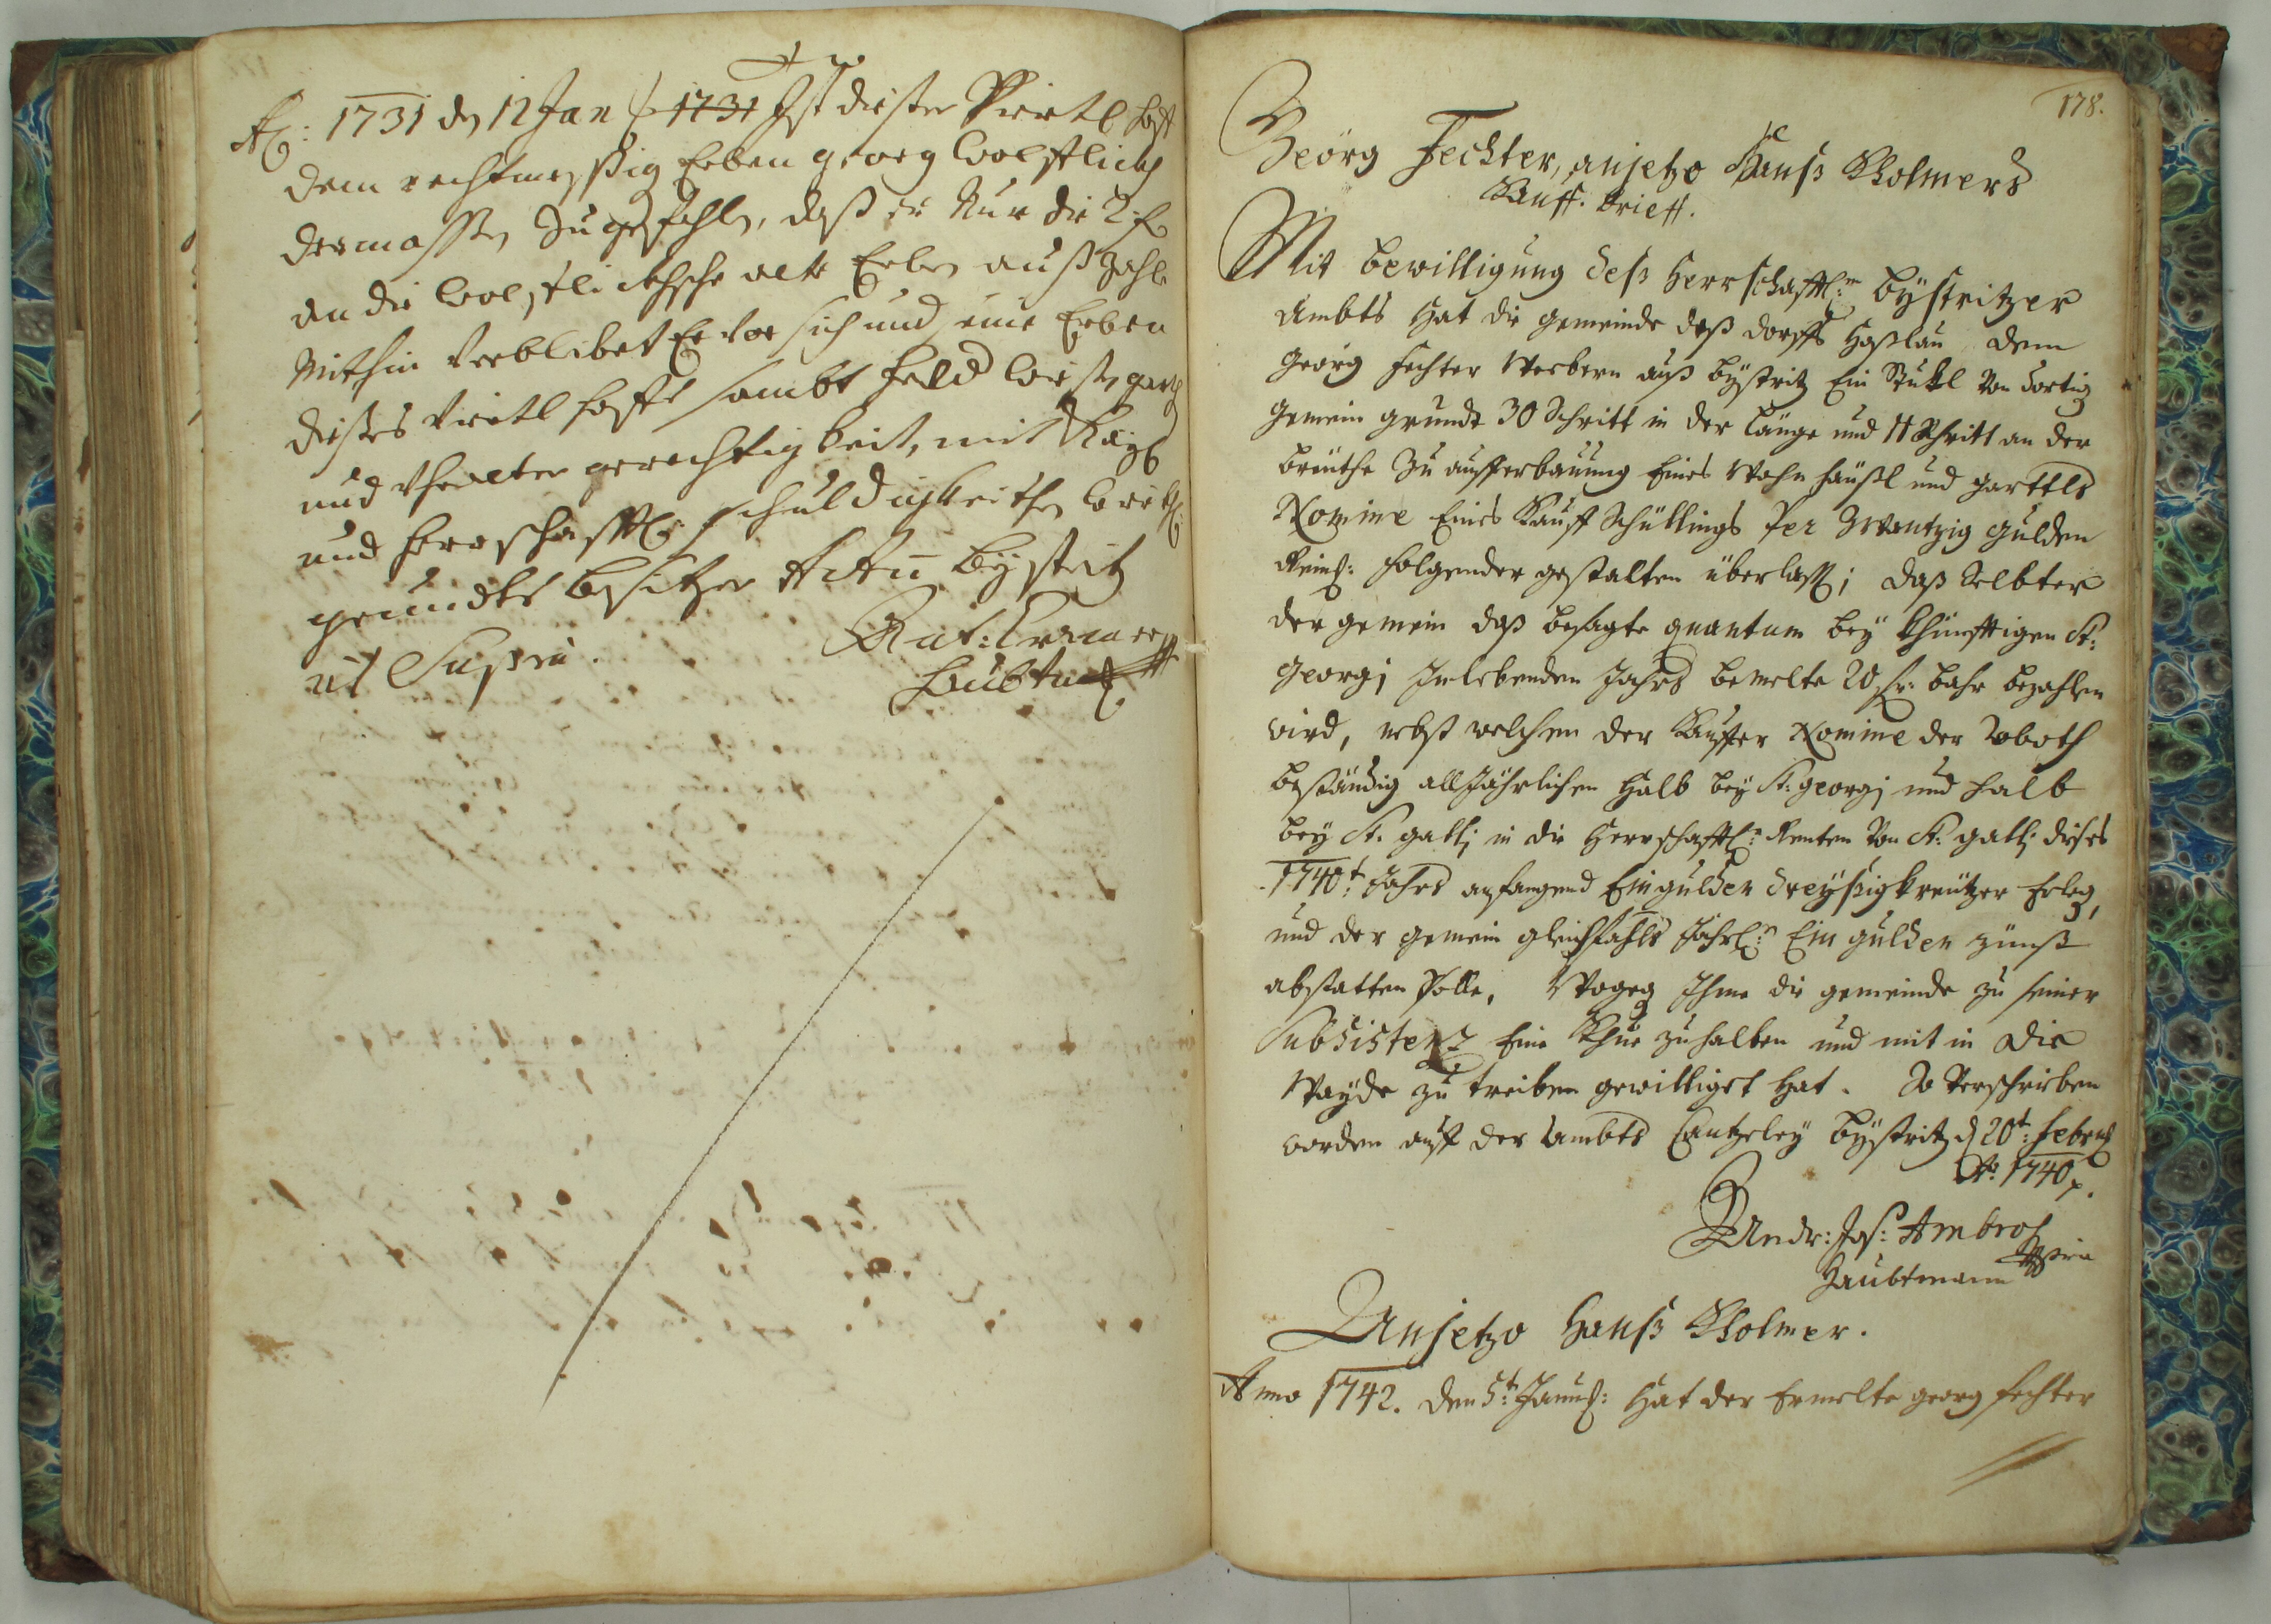 Ao: 1731 den 12 Jan 1731 Ist dieser Viertl Hoff
dem rechtmessig Erben georg Wolstlickh
dermassen Zugefahlen, daß er Nur die
an die Wolstlickhsche alte Erben auß Zahle
Mithin Verblibet Er vor sich und seine Erben
dieses Viertl Hoffs sambt Feld Wiesen
und gerechtigkeit, mit
und Herrschafftl: schuldigkeithen
grundts besitzer Actu Bystritz
ut Supra.
Ant:
Haubtm
178.
Georg Fechter, anjetzo Hanß Kholmers
Kauff. brieff.
Mit bewilligung deß Herrschafftl:n Bystritzer
Ambts Hat die gemeinde deß dorffs Haßlau dem
georg Fechter Webern auß Bystritz Ein Stukl Von dortig
gemein grundt 30 Schritt in der länge und 11 Schritt an der
breithe Zu aufferbauung Eines Wohn häußl und garttls
Nomine Eines Kauff Schüllings Per Zwantzig gulden
Reinl: folgender gestalten überlass; daß Selbter
der gemein daß besagte quantum bey khünfftigen St:
Georgj Inlebenden Jahrs bemelte 20 fr: bahr bezahlen
wird, nebst welchem der Kauffer Nomine der Roboth
beständig allJährlichen Halb bey St: georgj und halb
bey St: gallj in die Herrschafftl:n Renten Von St: gallj dieses
1740t: Jahrs anfangend Ein gulden dreyssig kreützer Erleg,
und der gemein gleichfahls Jährl:n Ein gulden zünß
abstatten solle, Wogeg Ihme die gemeinde zu seiner
Subsistenz Eine Khue zu halten und mit in die
Wayde zu treiben gewilliget hat. So Verschrieben
worden auff der Ambts Cantzeley Bystritz d 20t: Febru
Ao: 1740.
Andr: Jos: Ambros
Haubtmann
Anjetzo Hanß Kholmer.
Anno 1742. den 5t: Janu: Hat der Ermelte georg fechter